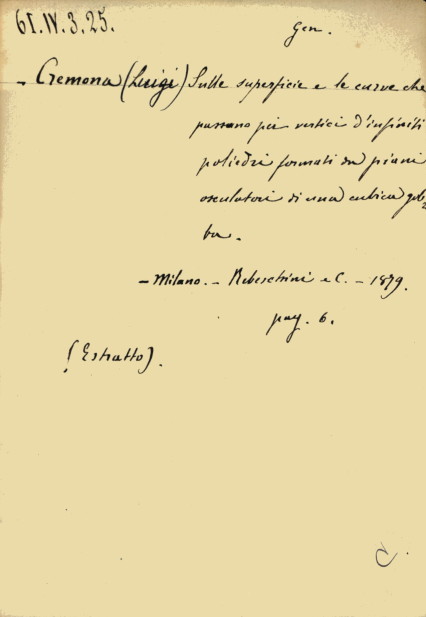 61.IV.3.25.
Gen.
- Cremona (Luigi) Sulle superficie e le curve che
passano pei vertici d'infiniti
poliedri formati da piani
osculatori di una cubica gob
ba.
- Milano. - Rebeschini e C. - 1879.
pag. 6.
(Estratto).
C.